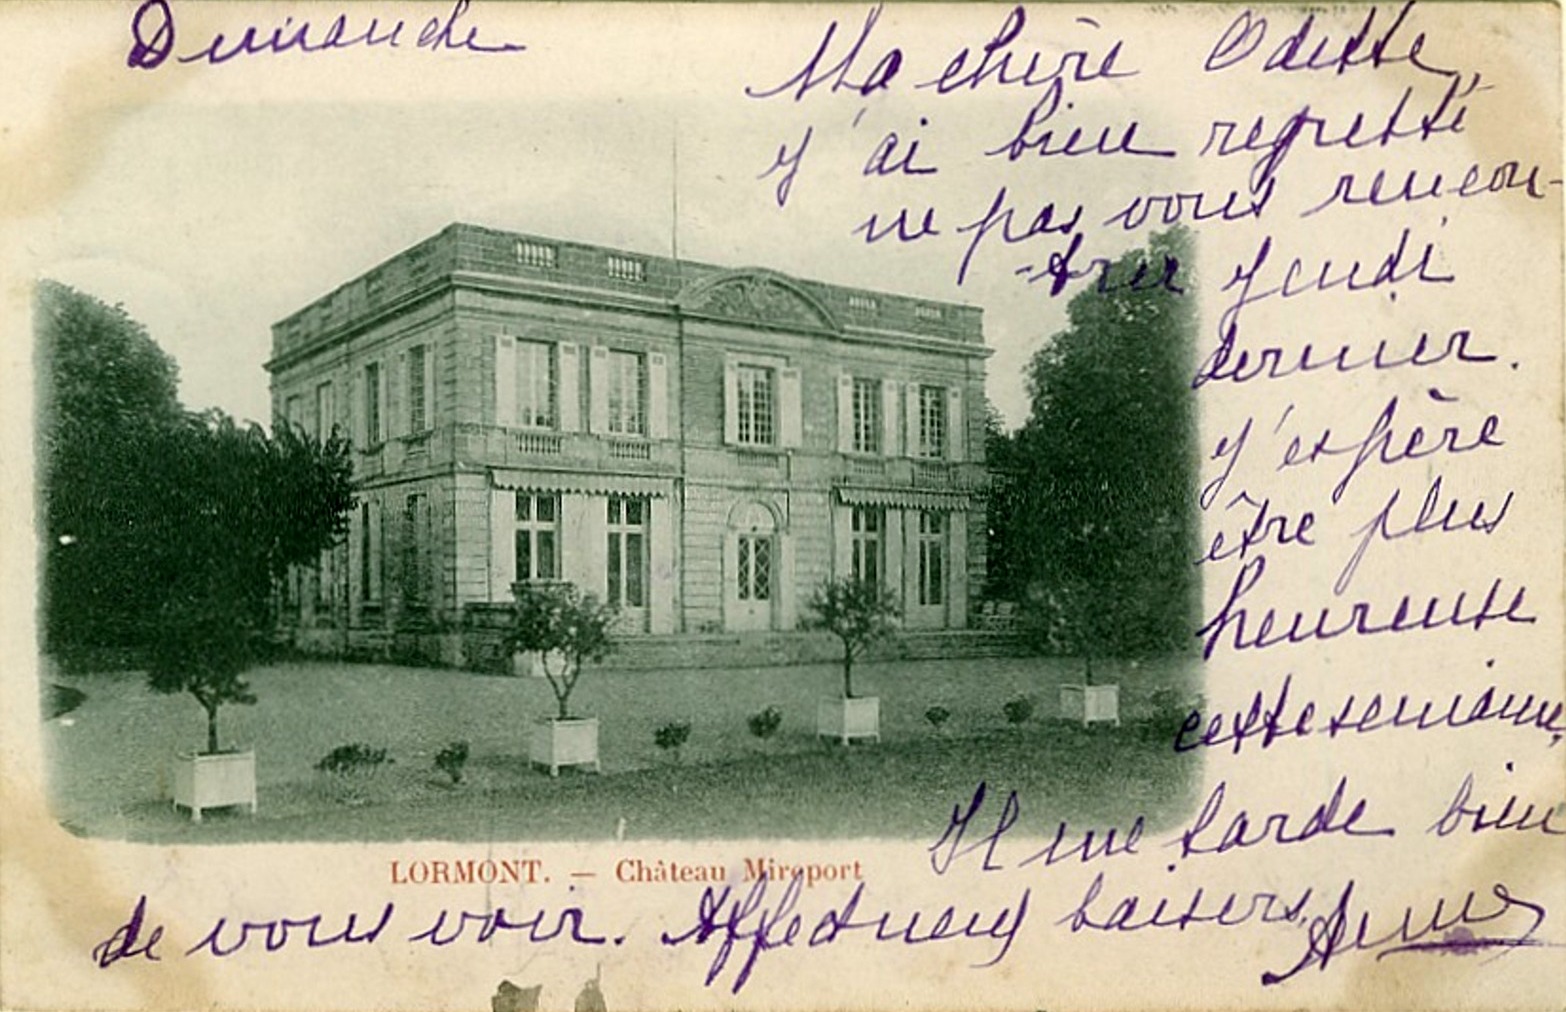 Dimanche
Ma chère Odette,
J'ai bien regretté
ne pas vous rencon-
-trer Jeudi
dernier.
J'espère
être plus
heureuse
cette semaine,
Il me tarde bien
LORMONT. — Château Mireport
de vous voir. Affectueux baisers,